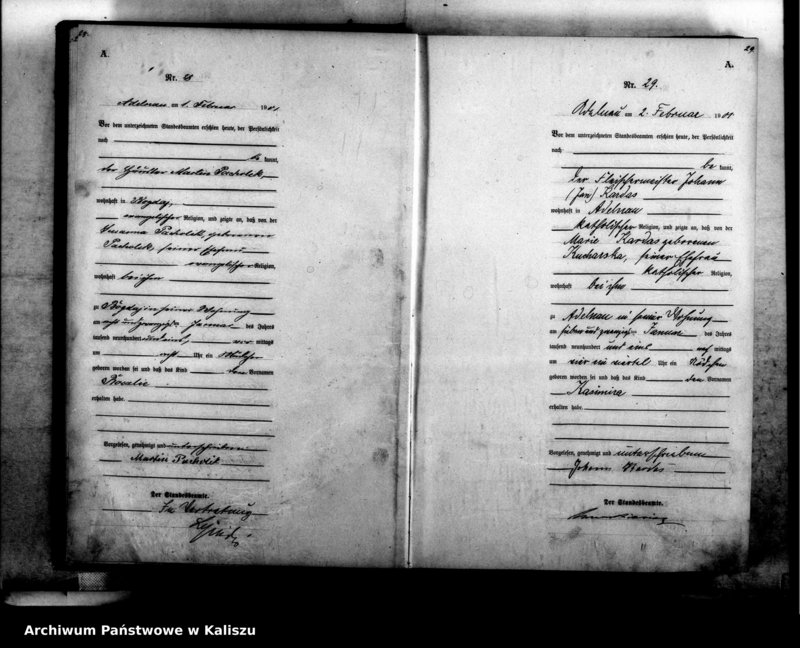 A.
Nr. 28
Adelnau am 1. Februar 1901.
Vor dem unterzeichneten Standesbeamten erschien heute, der Persönlichkeit
nach
be kannt,
der Häusler Martin Pacholek
wohnhaft in
evangelischer Religion, und zeigte an, daß von der
Pacholek, geborenen
Pacholek, seiner Ehefrau
evangelischer Religion,
wohnhaft bei ihm
zu in seiner Wohnung
am Januar des Jahres
tausend neunhundert und eins vor mittags
um acht Uhr ein Mädchen
geboren worden sei und daß das Kind den Vornamen
Rosalie
erhalten habe.
Vorgelesen, genehmigt und unterschrieben
Martin Pacholek
Der Standesbeamte.
In Vertretung
29.
A.
Nr. 29.
Adelnau am 2. Februar 1901
Vor dem unterzeichneten Standesbeamten erschien heute, der Persönlichkeit
nach
be kannt,
der Fleischermeister Johann
(Jan) Kardas
wohnhaft in Adelnau
katholischer Religion, und zeigte an, daß von der
Marie Kardas geborenen
Kucharska, seiner Ehefrau
katholischer Religion,
wohnhaft bei ihm
zu Adelnau in seiner Wohnung
am sieben und zwanzigsten Januar des Jahres
tausend neunhundert und eins nach mittags
um vier ein viertel Uhr ein Mädchen
geboren worden sei und daß das Kind den Vornamen
Kasimira
erhalten habe.
Vorgelesen, genehmigt und unterschrieben
Johann Kardas
Der Standesbeamte.
Archiwum Państwowe w Kaliszu